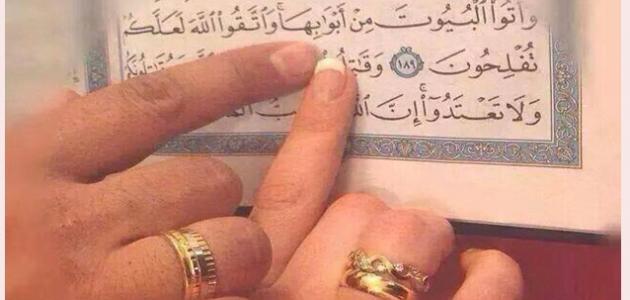 وَأْتُوا۟ ٱلْبُيُوتَ مِنْ أَبْوَٰبِهَا ۚ وَٱتَّقُوا۟ ٱللَّهَ لَعَلَّكُمْ
تُفْلِحُونَ ١٨٩ وَقَٰتِلُوا۟ يُقَٰتِلُونَكُمْ
وَلَا تَعْتَدُوٓا۟ ۚ إِنَّ ٱللَّهَ